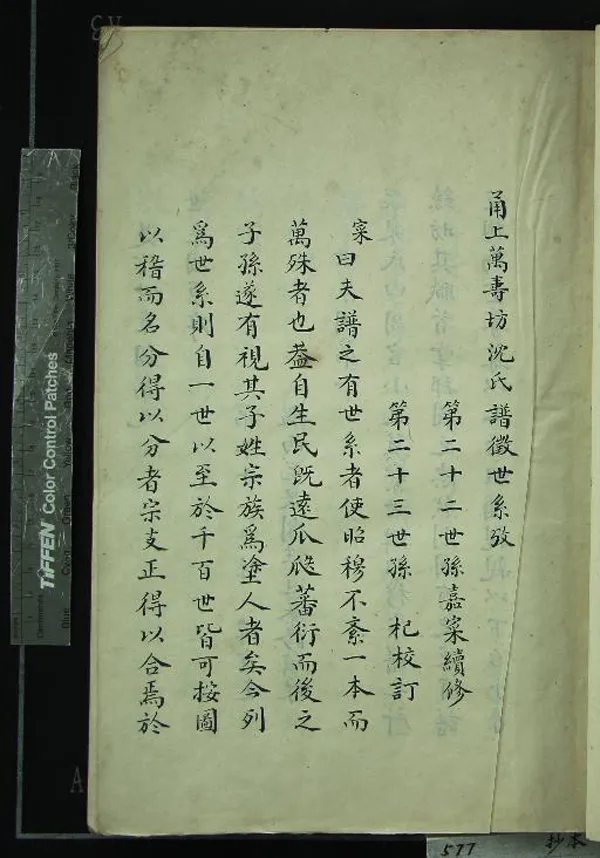 甬上萬壽坊沈氏譜徵世系攷
第二十二世孫嘉寀續修
第二十三世孫　杞校訂
寀曰夫譜之有世系者使昭穆不紊一本而
萬殊者也葢自生民既遠瓜瓞蕃衍而後之
子孫遂有視其子姓宗族爲塗人者矣今列
爲世系則自一世以至於千百世皆可按圖
以稽而名分得以分者宗支正得以合焉於
TIFFEN Color Control Patches
577
抄本